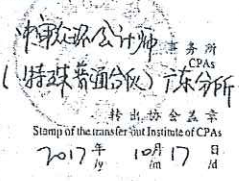 中审众环会计师事务所
CPAs
(特殊普通合伙)广东分所
转出协会盖章
Stamp of the transfer-out Institute of CPAs
2017年 10月17日
/y /m /d